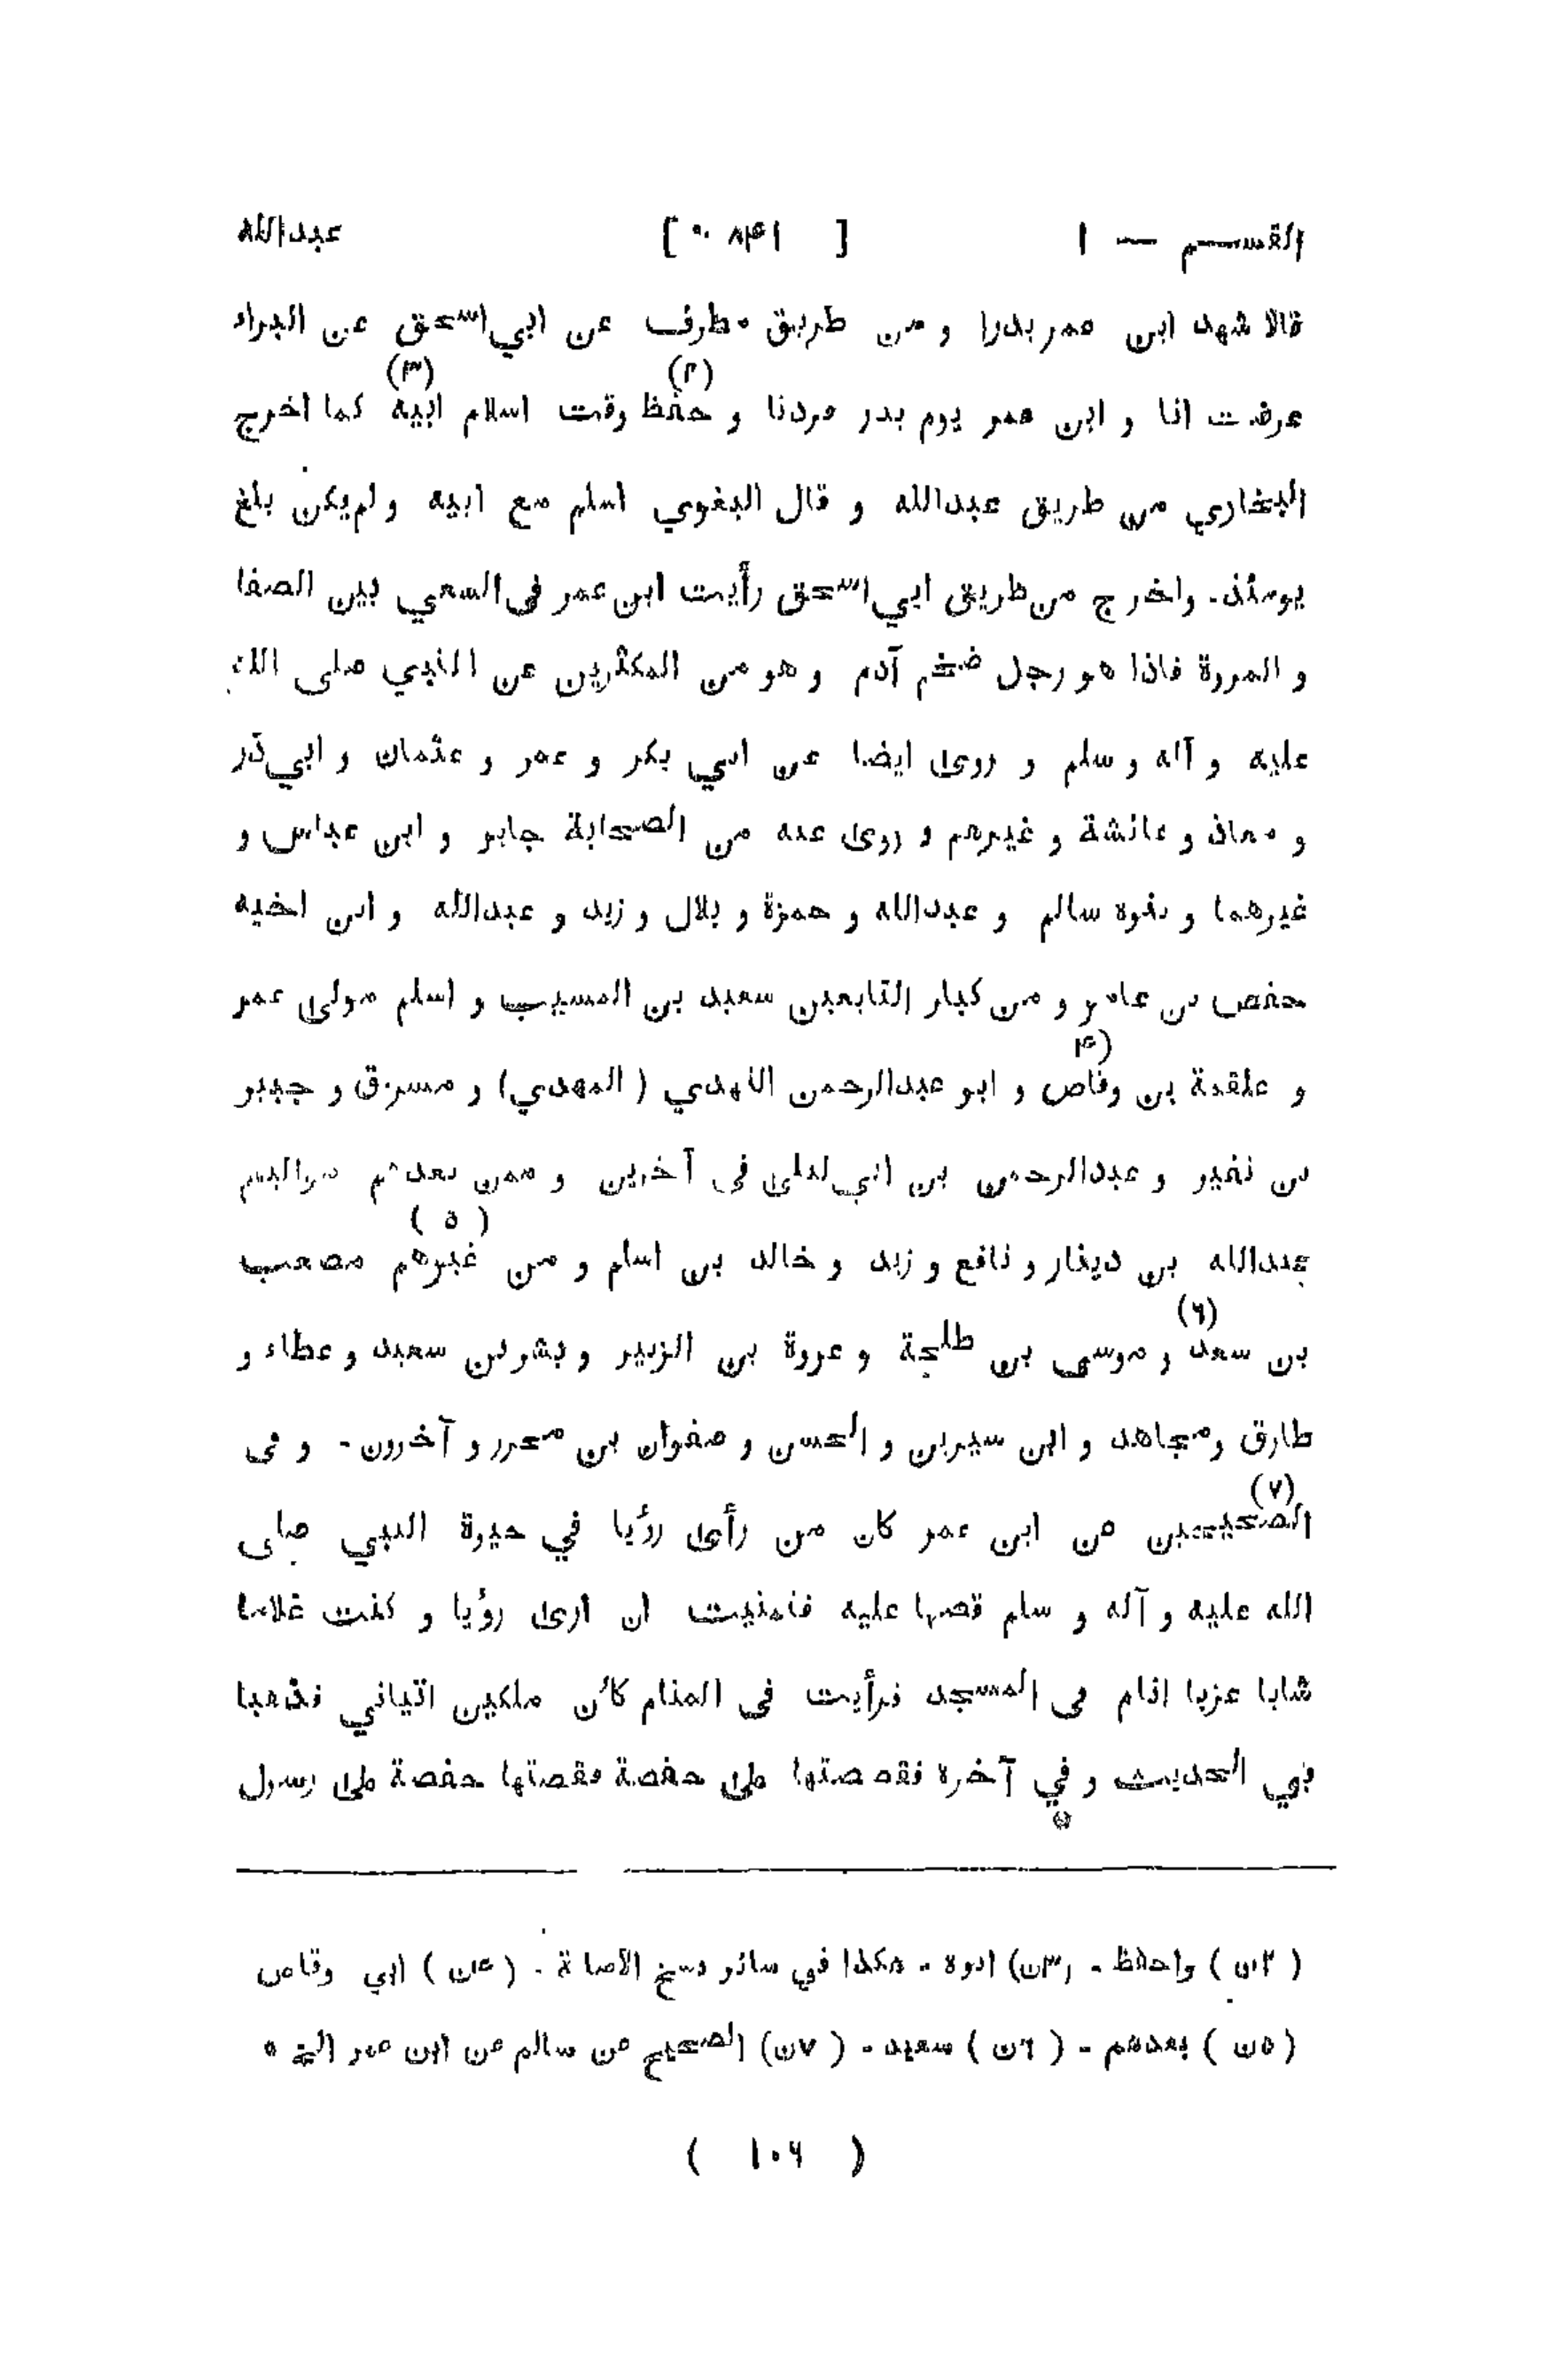 القسم — ١ [ ٨٤١ ] عبدالله
قالا شهد ابن عمر بدرا و من طريق مطرف عن ابي اسحق عن البراء
عرضت انا و ابن عمر يوم بدر فردنا و حفظ (٢) وقت اسلام ابيه (٣) كما اخرج
البخاري من طريق عبدالله و قال البغوي اسلم مع ابيه و لم يكن بلغ
يومئذ - واخرج من طريق ابي اسحق رأيت ابن عمر فى السعي بين الصفا
و المروة فاذا هو رجل ضخم آدم و هو من المكثرين عن النبي صلى الله
عليه و آله و سلم و روى ايضا عن ابي بكر و عمر و عثمان و ابي ذر
و معاذ و عائشة و غيرهم و روى عنه من الصحابة جابر و ابن عباس و
غيرهما و بنوه سالم و عبدالله و حمزة و بلال و زيد و عبدالله و ابن اخيه
حفص بن عاصم و من كبار التابعين سعيد بن المسيب و اسلم مولى عمر
و علقمة بن وقاص (٤) و ابو عبدالرحمن النهدي ( المهدي ) و مسروق و جبير
بن نفير و عبدالرحمن بن ابي ليلى فى آخرين و ممن بعدهم مواليهم
عبدالله بن دينار و نافع و زيد و خالد بن اسلم و من غيرهم ( ٥ ) مصعب
بن سعد (٦) و موسى بن طلحة و عروة بن الزبير و بشر بن سعيد و عطاء و
طارق و مجاهد و ابن سيرين و الحسن و صفوان بن محرر و آخرون - و فى
الصحيحين (٧) عن ابن عمر كان من رأى رؤيا في حيوة النبي صلى
الله عليه و آله و سلم قصها عليه فتمنيت ان ارى رؤيا و كنت غلاما
شابا عزبا انام فى المسجد فرأيت فى المنام كأن ملكين اتياني فذهبا
بي الحديث و في آخره فقصصتها على حفصة فقصتها حفصة على رسول
( ٢ن ) واحفظ - (٣ن) ابوه - هكذا في سائر نسخ الاصابة - ( ٤ن ) ابي وقاص
( ٥ن ) بعدهم - ( ٦ن ) سعيد - ( ٧ن ) الصحيح عن سالم عن ابن عمر الخ *
( ١٠٦ )